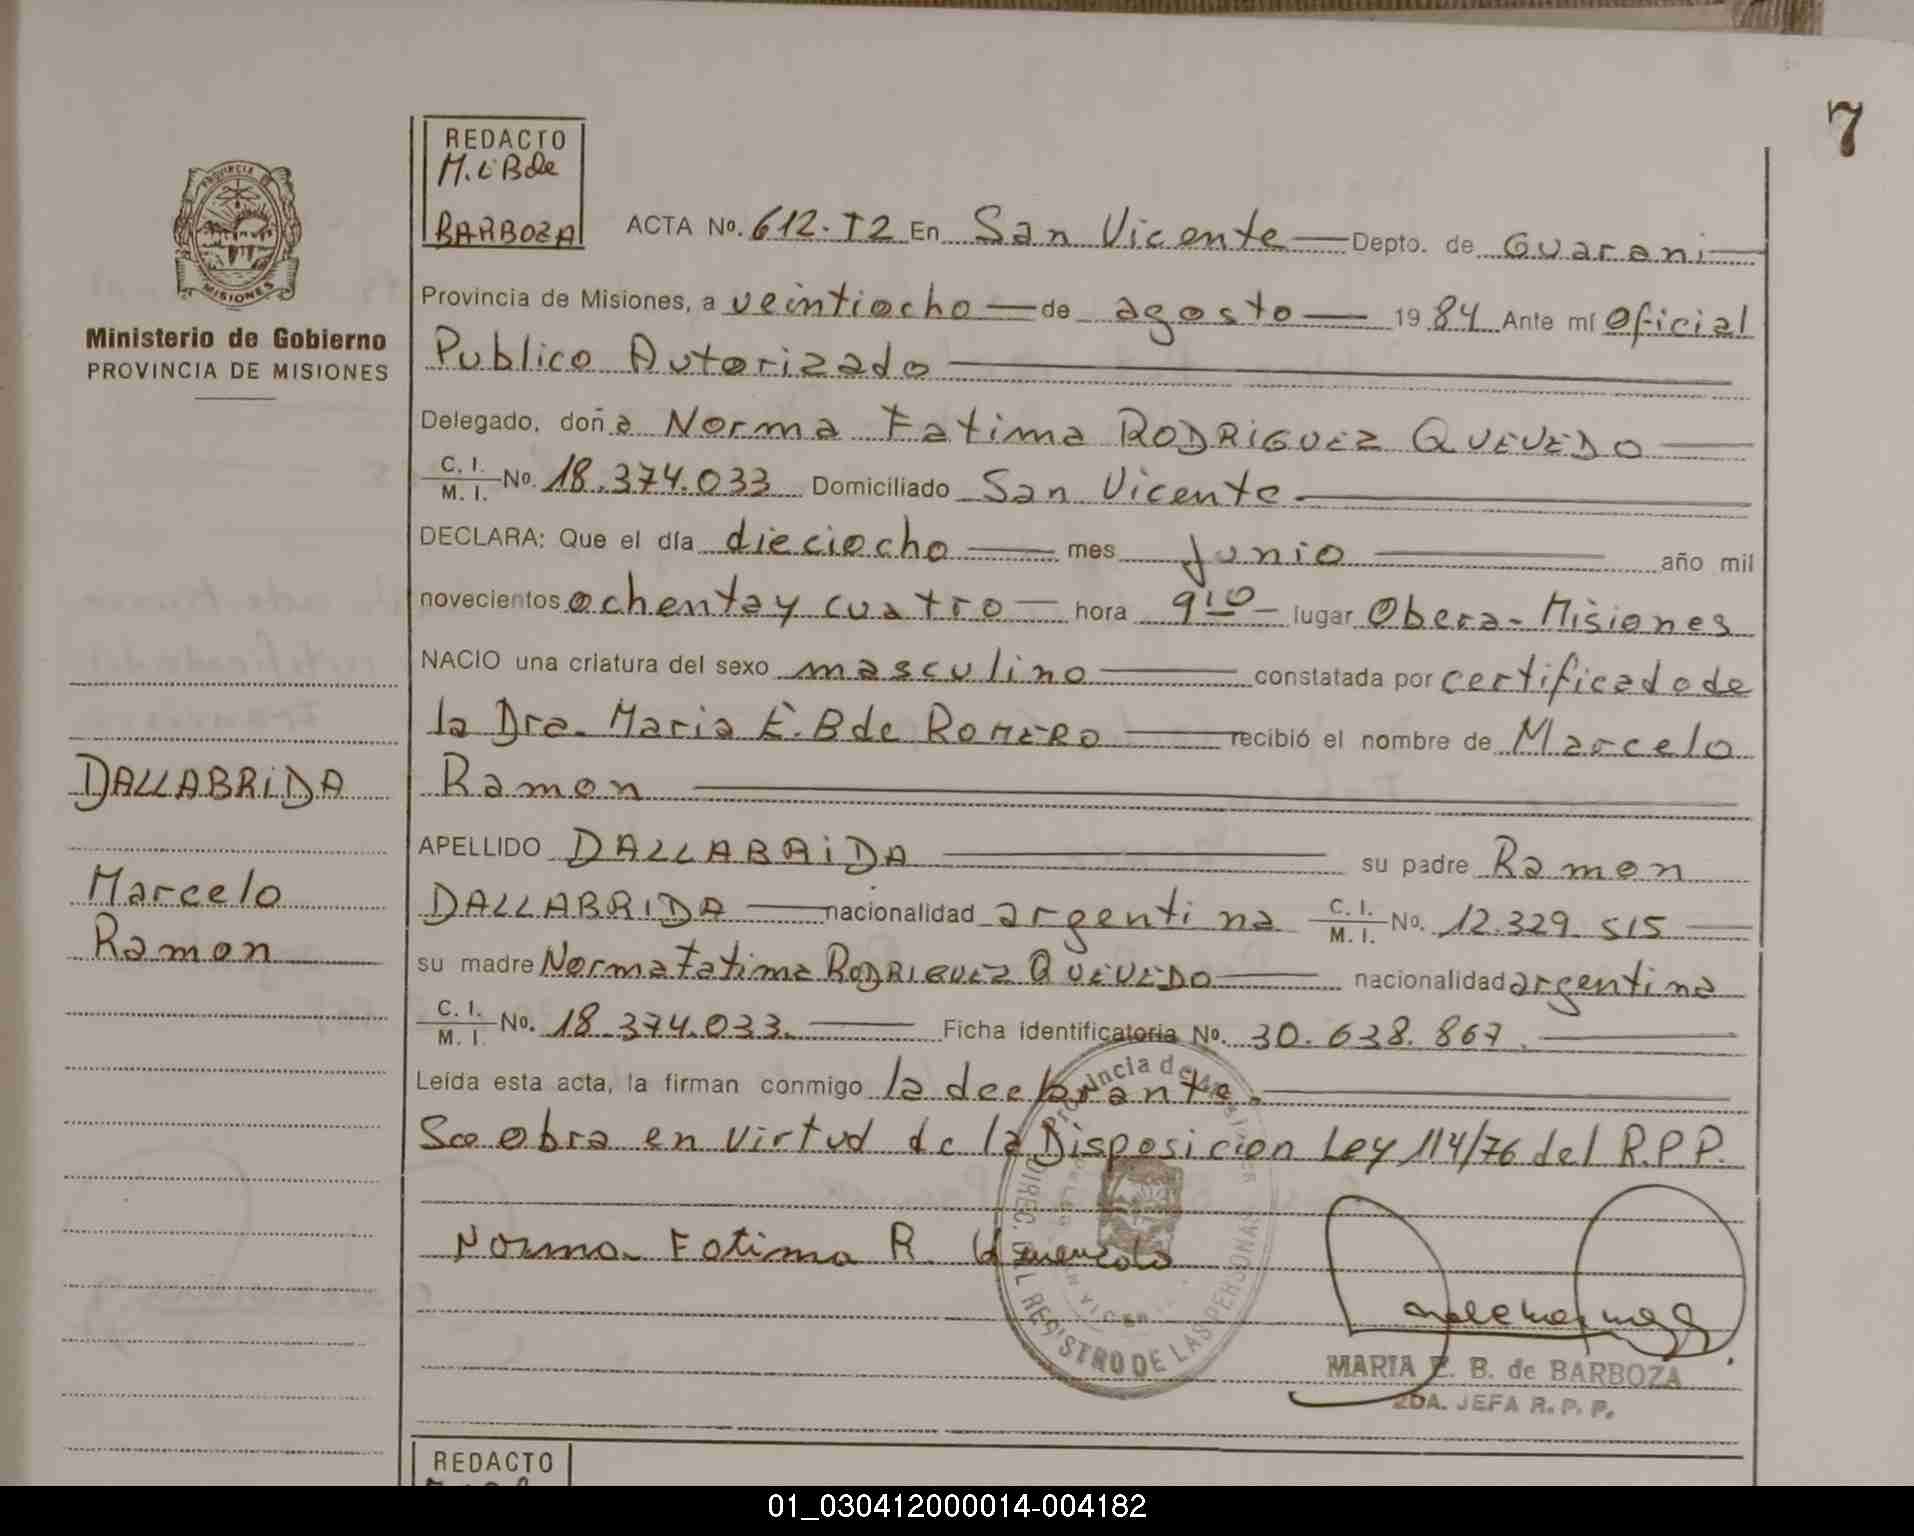 7
REDACTO
M.E B de
BARBOZA
PROVINCIA DE
MISIONES
Ministerio de Gobierno
PROVINCIA DE MISIONES
DALLABRIDA
Marcelo
Ramon
ACTA No. 612. T2 En San Vicente Depto. de Guarani
Provincia de Misiones, a veintiocho de agosto 1984 Ante mí Oficial
Publico Autorizado
Delegado, doña Norma Fatima RODRIGUEZ QUEVEDO
C. I. M. I. No. 18.374.033 Domiciliado San Vicente
DECLARA: Que el día dieciocho mes Junio año mil
novecientos ochenta y cuatro hora 9,10 lugar Obera - Misiones
NACIO una criatura del sexo masculino constatada por certificado de
la Dra. Maria E. B de ROMERO recibió el nombre de Marcelo
Ramon
APELLIDO DALLABRIDA su padre Ramon
DALLABRIDA nacionalidad argentina C. I. M. I. No. 12.329.515
su madre Norma Fatima RODRIGUEZ QUEVEDO nacionalidad argentina
C. I. M. I. No. 18.374.033. Ficha identificatoria No. 30.638.867.
Leída esta acta, la firman conmigo la declarante.
Se obra en virtud de la Disposicion Ley 114/76 del R.P.P.
Norma Fatima R.
DIREC. DEL REGISTRO DE LAS PERSONAS
MARIA E. B. de BARBOZA
2DA. JEFA R. P. P.
REDACTO
01_030412000014-004182